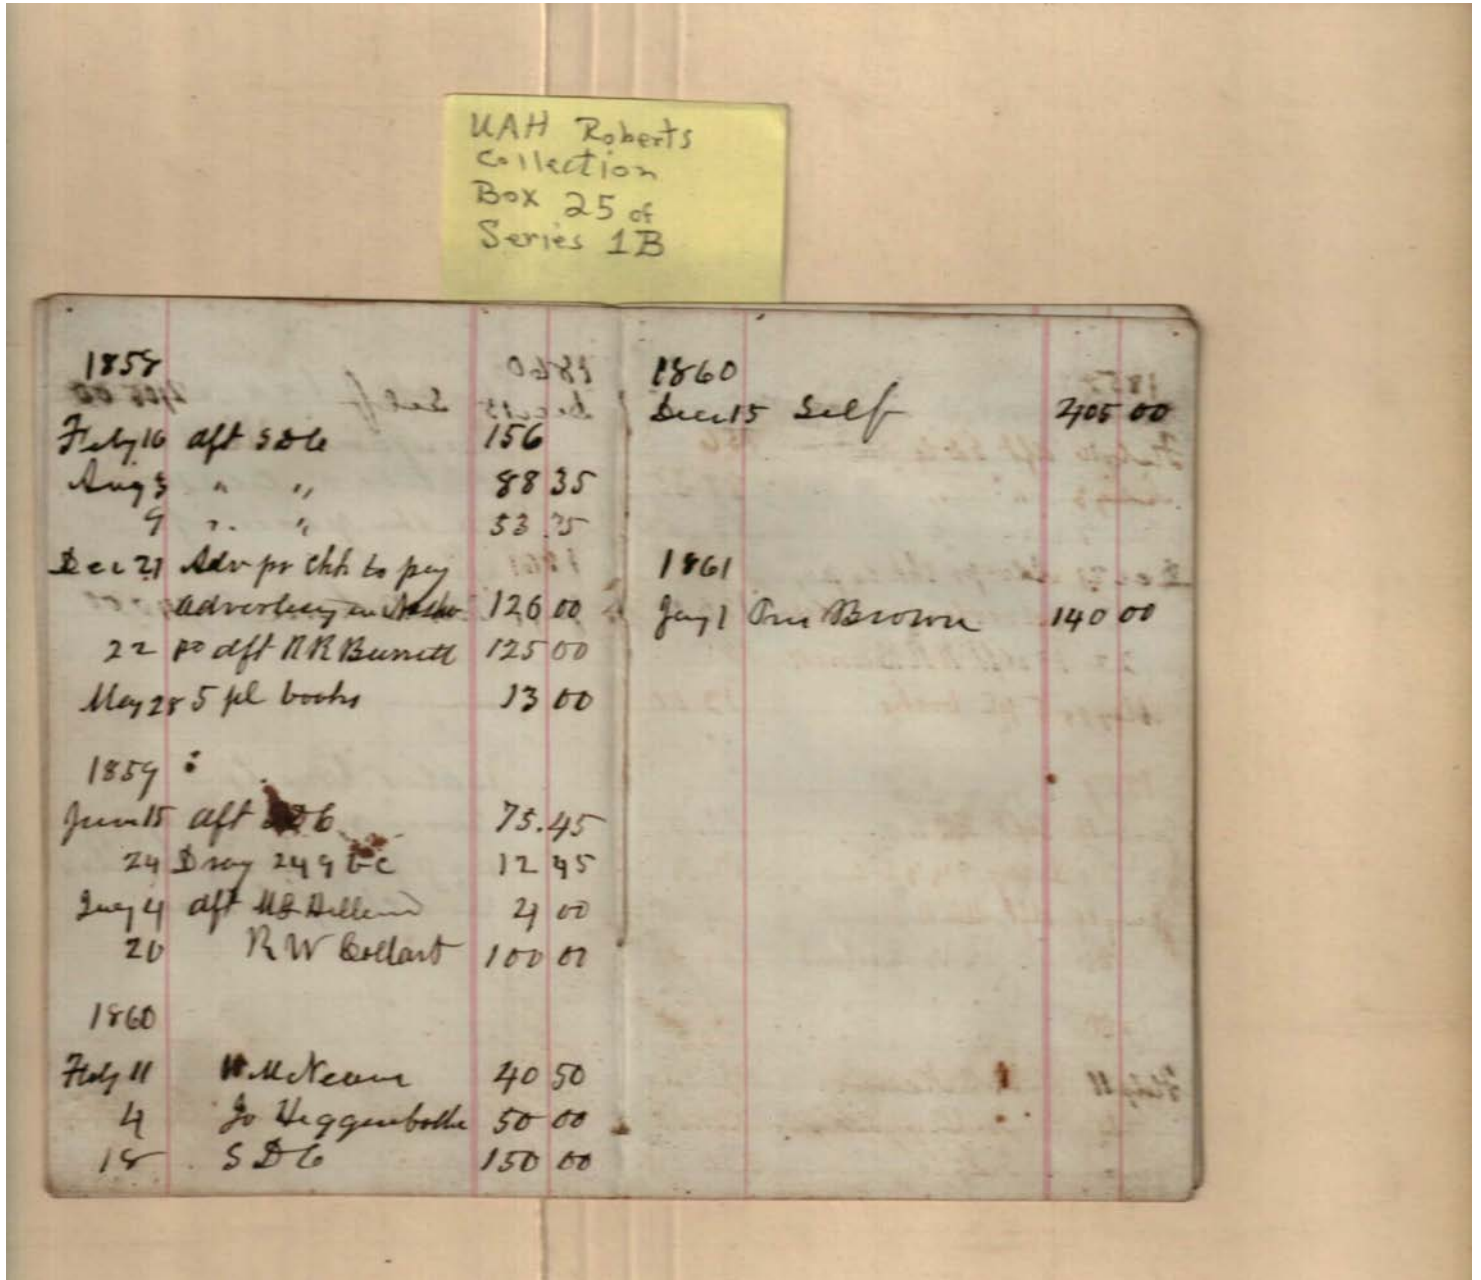 UAH Roberts
Collection
Box 25 of
Series 1B
1858
Feby 16 dft S D C 156
Aug 3 " " 88 35
9 " " 53 35
Dec 21 Adv pr Chk to pay
advertisg in 126 00
22 po dft R R Burnett 125 00
May 28 5 pl books 13 00
1859
June 15 dft S D C 75.45
24 Dray 24 9 bc 12 45
July 4 dft 4 00
20 R W 100 00
1860
Feby 11 40 50
4 Jo Higgenbothe 50 00
18 S D C 150 00
1860
Dec 15 Self 405 00
1861
Jay 1 Brown 140 00